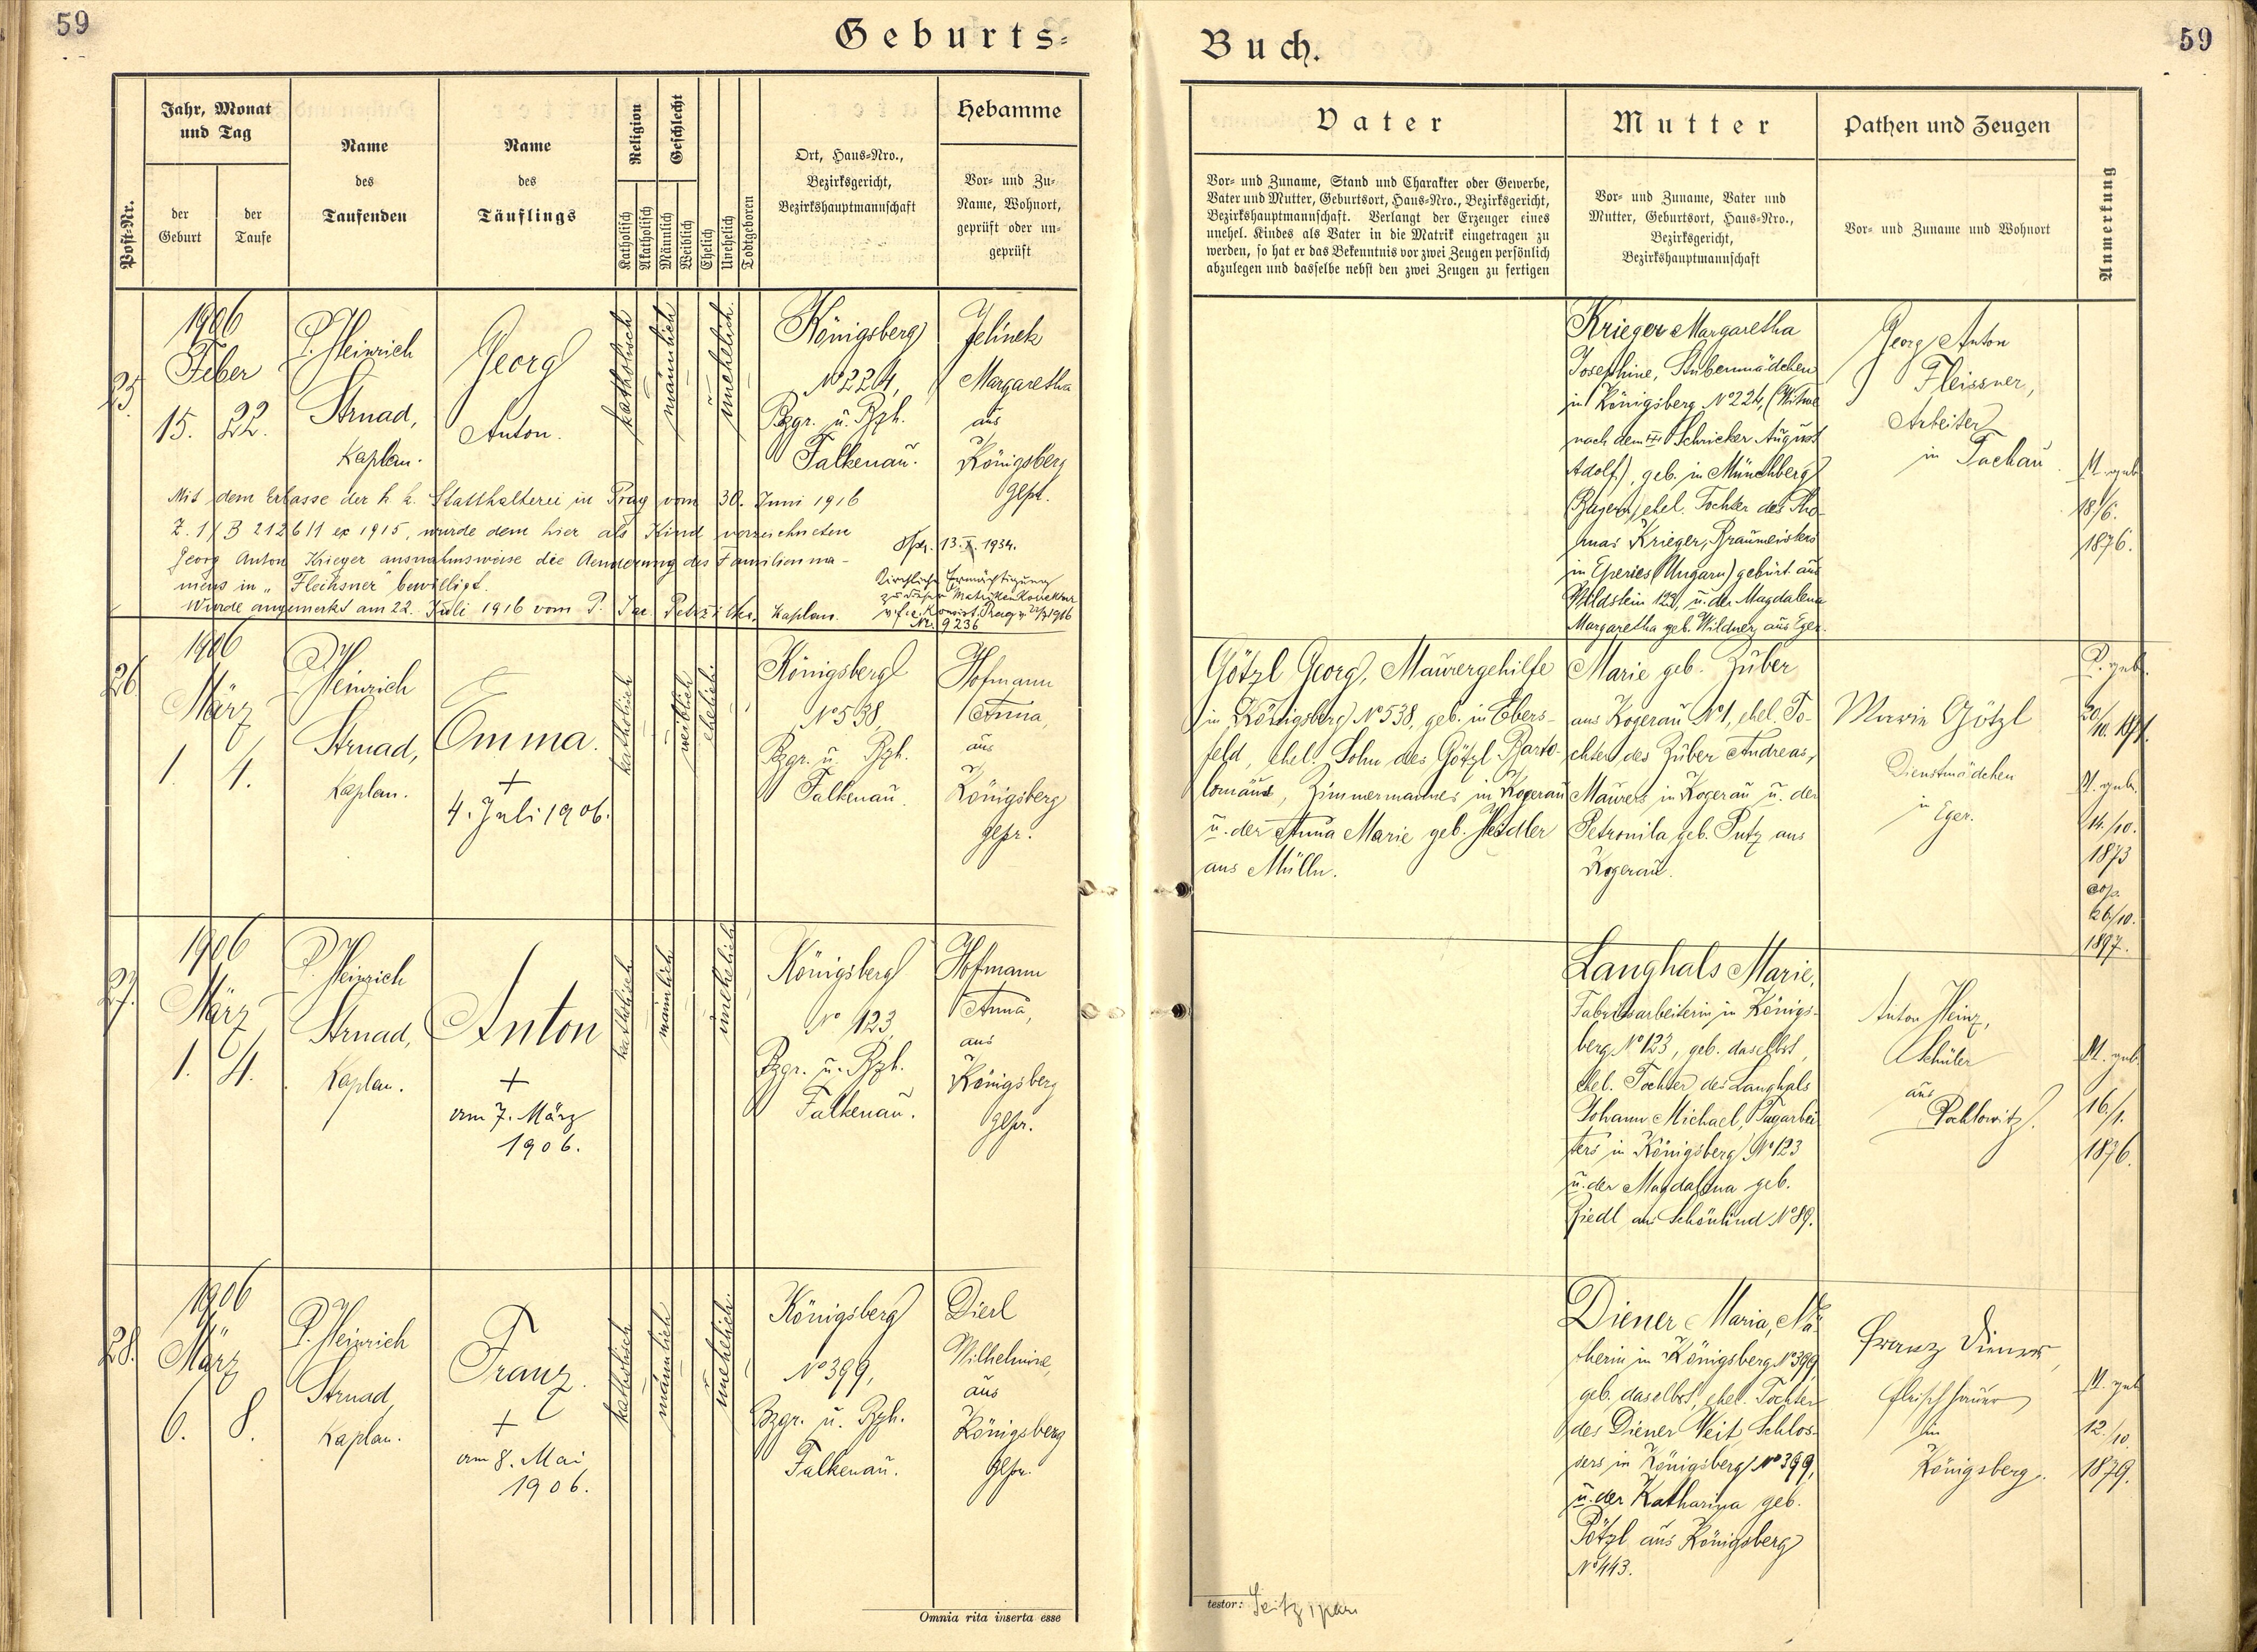 59
Geburts-
Buch.
59
Post-Nr.
Jahr, Monat
und Tag
der
Geburt
der
Taufe
Name
des
Taufenden
Name
des
Täuflings
Religion
Katholisch
Akatholisch
Geschlecht
Männlich
Weiblich
Ehelich
Unehelich
Todtgeboren
Ort, Haus-Nro.,
Bezirksgericht,
Bezirkshauptmannschaft
Hebamme
Vor- und Zu-
Name, Wohnort,
geprüft oder un-
geprüft
Vater
Vor- und Zuname, Stand und Charakter oder Gewerbe,
Vater und Mutter, Geburtsort, Haus-Nro., Bezirksgericht,
Bezirkshauptmannschaft. Verlangt der Erzeuger eines
unehel. Kindes als Vater in die Matrik eingetragen zu
werden, so hat er das Bekenntnis vor zwei Zeugen persönlich
abzulegen und dasselbe nebst den zwei Zeugen zu fertigen
Mutter
Vor- und Zuname, Vater und
Mutter, Geburtsort, Haus-Nro.,
Bezirksgericht,
Bezirkshauptmannschaft
Pathen und Zeugen
Vor- und Zuname und Wohnort
Anmerkung
25.
1906
Feber
15. 22.
P. Heinrich
Strnad,
Kaplan.
Georg
Anton.
katholisch
männlich
unehelich.
Königsberg
No 224,
Bzgr. u. Bzh.
Falkenau.
Jelinek
Margaretha
aus
Königsberg
gepr.
Krieger Margaretha
Josephine, Stubenmädchen
in Königsberg No 224, (Witwe
nach dem Schricker August
Adolf), geb. in Münchberg
Bayern, ehel. Tochter des Tho-
mas Krieger, Braumeisters
in Eperies (Ungarn) gebürt. aus
Wildstein 122, u. der Magdalena
Margaretha geb. Wildner aus Eger.
Georg Anton
Fleissner,
Arbeiter
in Tachau.
M. geb.
18/6.
1876.
Mit dem Erlasse der k. k. Statthalterei in Prag vom 30. Juni 1916
Z. 1/B 2126/1 ex 1915, wurde dem hier als Kind verzeichneten
Georg Anton Krieger ausnahmsweise die Aenderung des Familienna-
mens in „Fleissner" bewilligt.
Wurde angemerkt am 22. Juli 1916 vom P. Kaplan.
13. X. 1934.
Kirchliche Ermächtigung
zu dieser Matrikenkorrektur
Nr. 9236
26.
1906
März
1. 4.
P. Heinrich
Strnad,
Kaplan.
Emma.
+
4. Juli 1906.
katholisch
weiblich
ehelich.
Königsberg
No 538,
Bzgr. u. Bzh.
Falkenau.
Hofmann
Anna,
aus
Königsberg
gepr.
Götzl Georg, Maurergehilfe
in Königsberg No 538, geb. in Ebers-
feld, ehel. Sohn des Götzl Barto-
lomäus, Zimmermannes in Kogerau
u. der Anna Marie geb. Heidler
aus Mülln.
Marie geb. Zuber
aus Kogerau No 1, ehel. To-
chter des Zuber Andreas,
Maurers in Kogerau u. der
Petronila geb. Putz aus
Kogerau.
Marie Götzl
Dienstmädchen
in Eger.
V. geb.
20/10. 1871.
M. geb.
14./10.
1873
cop.
26/10.
1897.
27.
1906
März
1. 4.
P. Heinrich
Strnad,
Kaplan.
Anton
+
am 7. März
1906.
katholisch
männlich
unehelich
Königsberg
No 123,
Bzgr. u. Bzh.
Falkenau.
Hofmann
Anna,
aus
Königsberg
gepr.
Langhals Marie,
Fabriksarbeiterin in Königs-
berg No 123, geb. daselbst,
ehel. Tochter des Langhals
Johann Michael, Tagarbei-
ters in Königsberg No 123
u. der Magdalena geb.
Riedl aus Schönlind No 89.
Anton Heinz,
Schüler
aus
Pochlowitz.
M. geb.
16./1.
1876.
28.
1906
März
6. 8.
P. Heinrich
Strnad,
Kaplan.
Franz.
+
am 8. Mai
1906.
katholisch
männlich
unehelich.
Königsberg
No 399,
Bzgr. u. Bzh.
Falkenau.
Dierl
Wilhelmine,
aus
Königsberg
gepr.
Diener Maria, Nä-
therin in Königsberg No 399,
geb. daselbst, ehel. Tochter
des Diener Veit, Schlos-
sers in Königsberg No 399,
u. der Katharina geb.
Pötzl aus Königsberg
No 443.
Franz Diener,
Fleischhauer
in
Königsberg.
M. geb.
12./10.
1879.
Omnia rita inserta esse
testor: